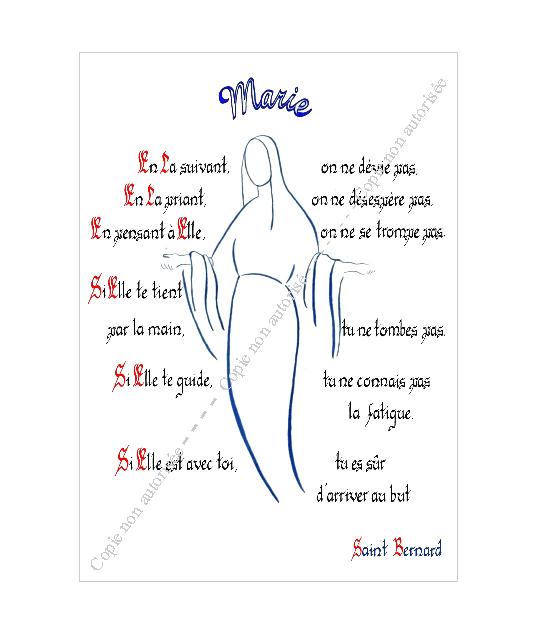 Marie
En La suivant, on ne dévie pas.
En La priant, on ne désespère pas.
En pensant à Elle, on ne se trompe pas.
Si Elle te tient
par la main, tu ne tombes pas.
Si Elle te guide, tu ne connais pas
la fatigue.
Si Elle est avec toi, tu es sûr
d'arriver au but
Saint Bernard
Copie non autorisée ----- Copie non autorisée ----- Copie non autorisée